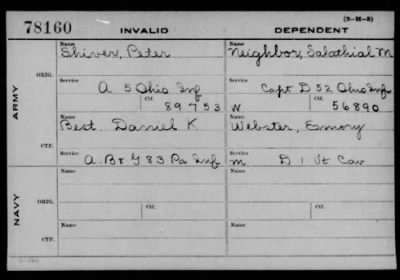 (3-H-5)
78160 INVALID DEPENDENT
Name Name
Shiver, Peter Neighbor, Salathial M
ORIG.
Service Service
A 5 Ohio Inf Capt D 52 Ohio Inf
Ctf. Ctf.
89753 W 56890
ARMY
Name Name
Best Daniel K Webster, Emory
CTF.
Service Service
A. B & G 83 Pa Inf M D 1 Vt Cav
Name Name
ORIG.
Service Ctf. Service Ctf.
NAVY
Name Name
CTF.